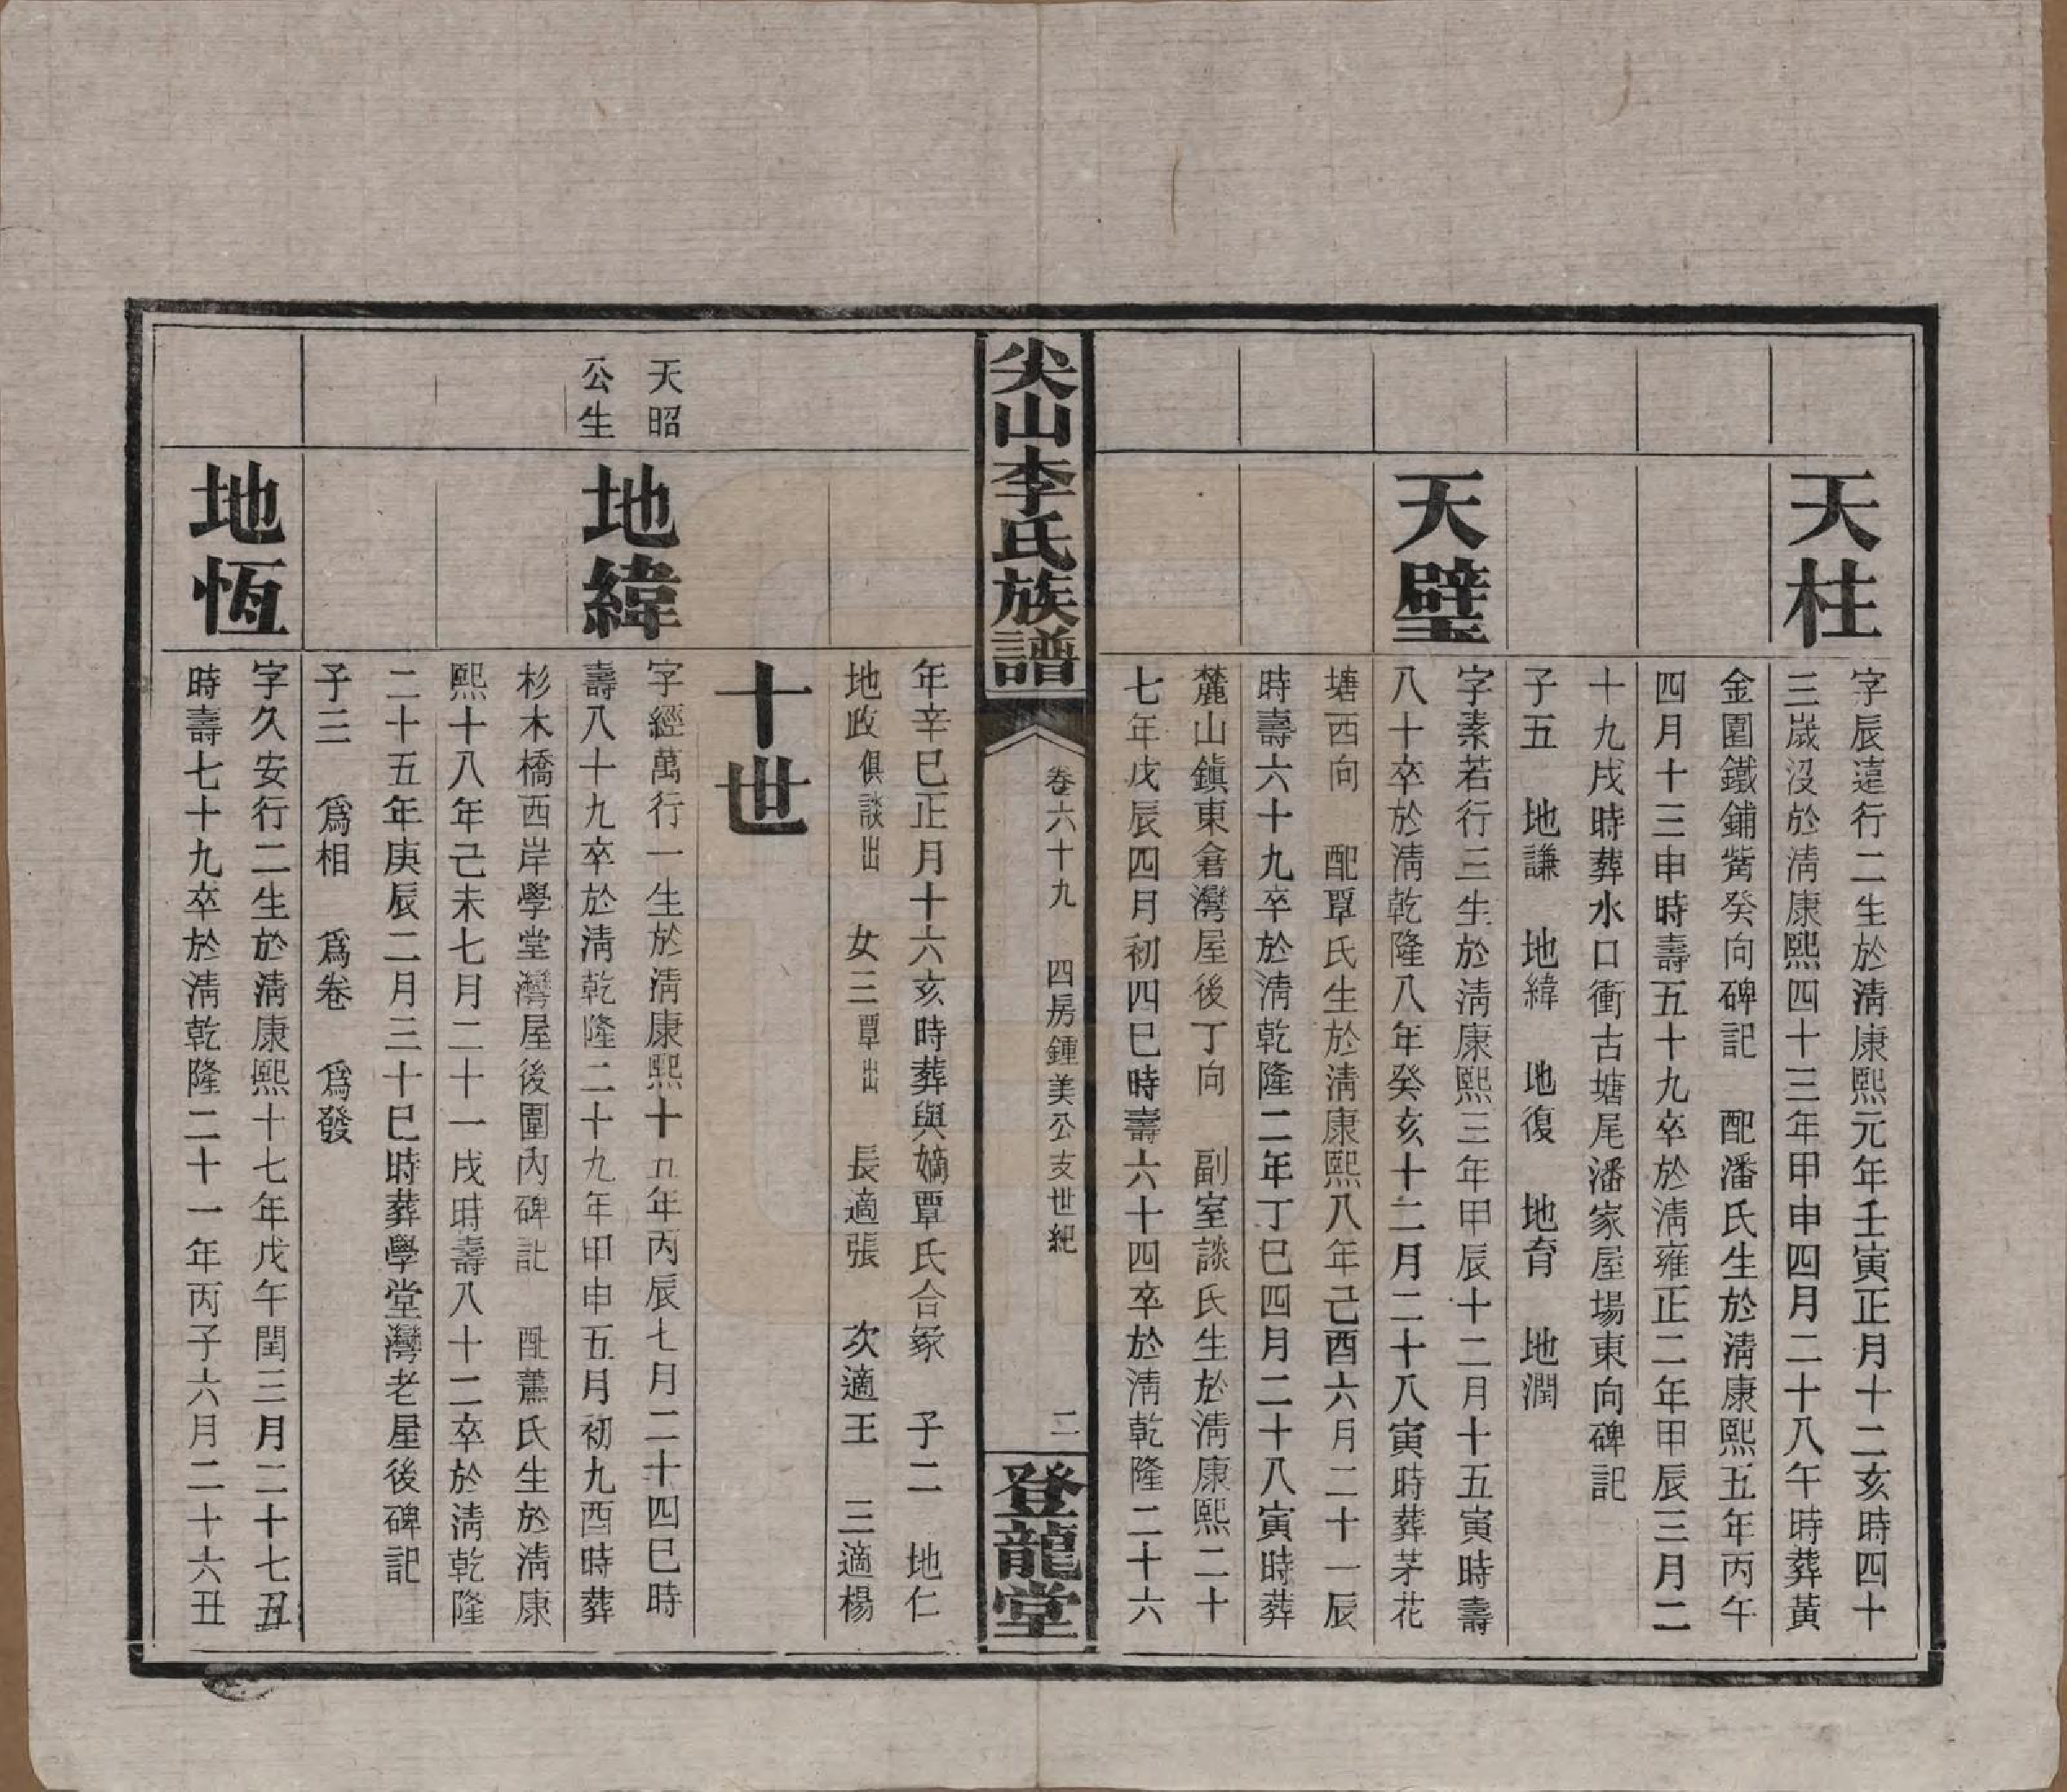 天柱
字辰遠行二生於淸康熙元年壬寅正月十二亥時四十
三歲沒於淸康熙四十三年甲申四月二十八午時葬黃
金圍鐵鋪觜癸向碑記　配潘氏生於淸康熙五年丙午
四月十三申時壽五十九卒於淸雍正二年甲辰三月二
十九戌時葬水口衝古塘尾潘家屋場東向碑記
子五　地謙　地緯　地復　地育　地潤
天璧
字素若行三生於淸康熙三年甲辰十二月十五寅時壽
八十卒於淸乾隆八年癸亥十二月二十八寅時葬茅花
塘西向　配覃氏生於淸康熙八年己酉六月二十一辰
時壽六十九卒於淸乾隆二年丁巳四月二十八寅時葬
麓山鎭東倉灣屋後丁向　副室談氏生於淸康熙二十
七年戊辰四月初四巳時壽六十四卒於淸乾隆二十六
尖山李氏族譜
卷六十九　四房鍾美公支世紀　二
登龍堂
年辛巳正月十六亥時葬與嫡覃氏合冢　子二　地仁
地政俱談出　女三覃出　長適張　次適王　三適楊
十世
天昭
公生
地緯
字經萬行一生於淸康熙十五年丙辰七月二十四巳時
壽八十九卒於淸乾隆二十九年甲申五月初九酉時葬
杉木橋西岸學堂灣屋後圍內碑記　配蕭氏生於淸康
熙十八年己未七月二十一戌時壽八十二卒於淸乾隆
二十五年庚辰二月三十巳時葬學堂灣老屋後碑記
子三　爲相　爲卷　爲發
地恆
字久安行二生於淸康熙十七年戊午閏三月二十七丑
時壽七十九卒於淸乾隆二十一年丙子六月二十六丑